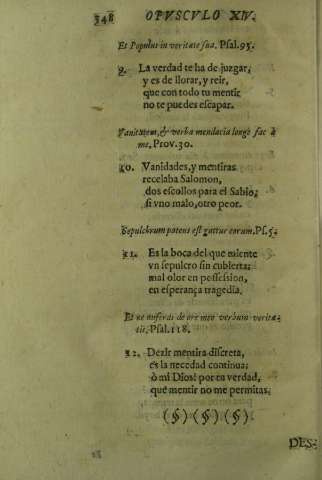 348 OPVSCVLO XIV.
Et Populus in veritate sua. Psal. 95.
9. La verdad te ha de juzgar,
y es de llorar, y reir,
que con todo tu mentir
no te puedes escapar.
Vanitatem, & verba mendacia longe fac à
me. Prov. 30.
10. Vanidades, y mentiras
recelaba Salomon,
dos escollos para el Sabio,
si vno malo, otro peor.
Sepulchrum patens est guttur eorum. Ps. 5.
11. Es la boca del que miente
vn sepulcro sin cubierta;
mal olor en possession,
en esperança tragedia.
Et ne auferas de ore meo verbum verita-
tis. Psal. 118.
12. Dezir mentira discreta,
es la necedad continua;
ò mi Dios! por tu verdad,
que mentir no me permitas.
(§) (§) (§)
DES-